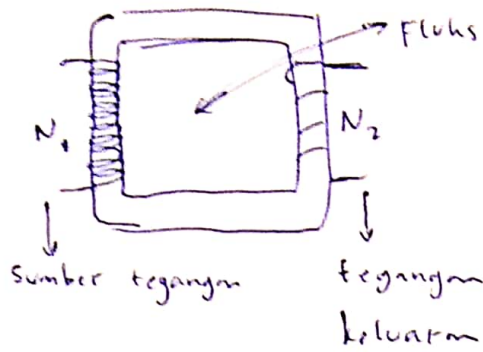 Fluks
N₁
N₂
Sumber tegangan
tegangan
keluaran